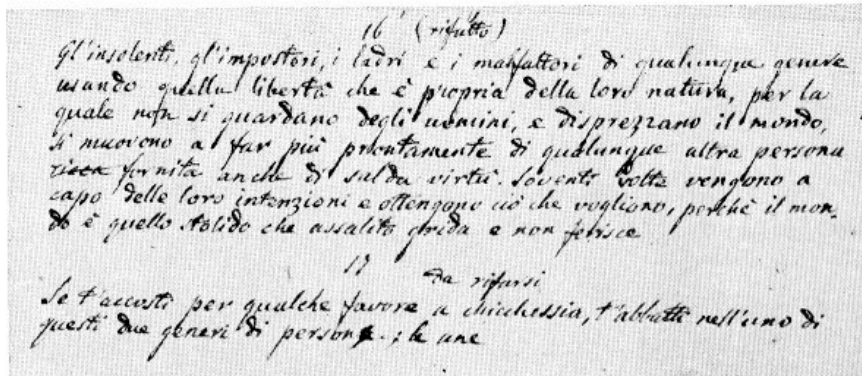 16 (rifatto)
Gl'insolenti, gl'impostori, i ladri e i malfattori di qualunque genere
usando quella libertà che è propria della loro natura, per la
quale non si guardano degli uomini, e disprezzano il mondo,
si muovono a far più prontamente di qualunque altra persona
ricca fornita anche di salda virtù. Soventi volte vengono a
capo delle loro intenzioni e ottengono ciò che vogliono, perchè il mon-
do è quello stolido che assalito grida e non ferisce
17 da rifarsi
Se t'accosti per qualche favore a chicchessia, t'abbatti nell'uno di
questi due generi di persone.; le une